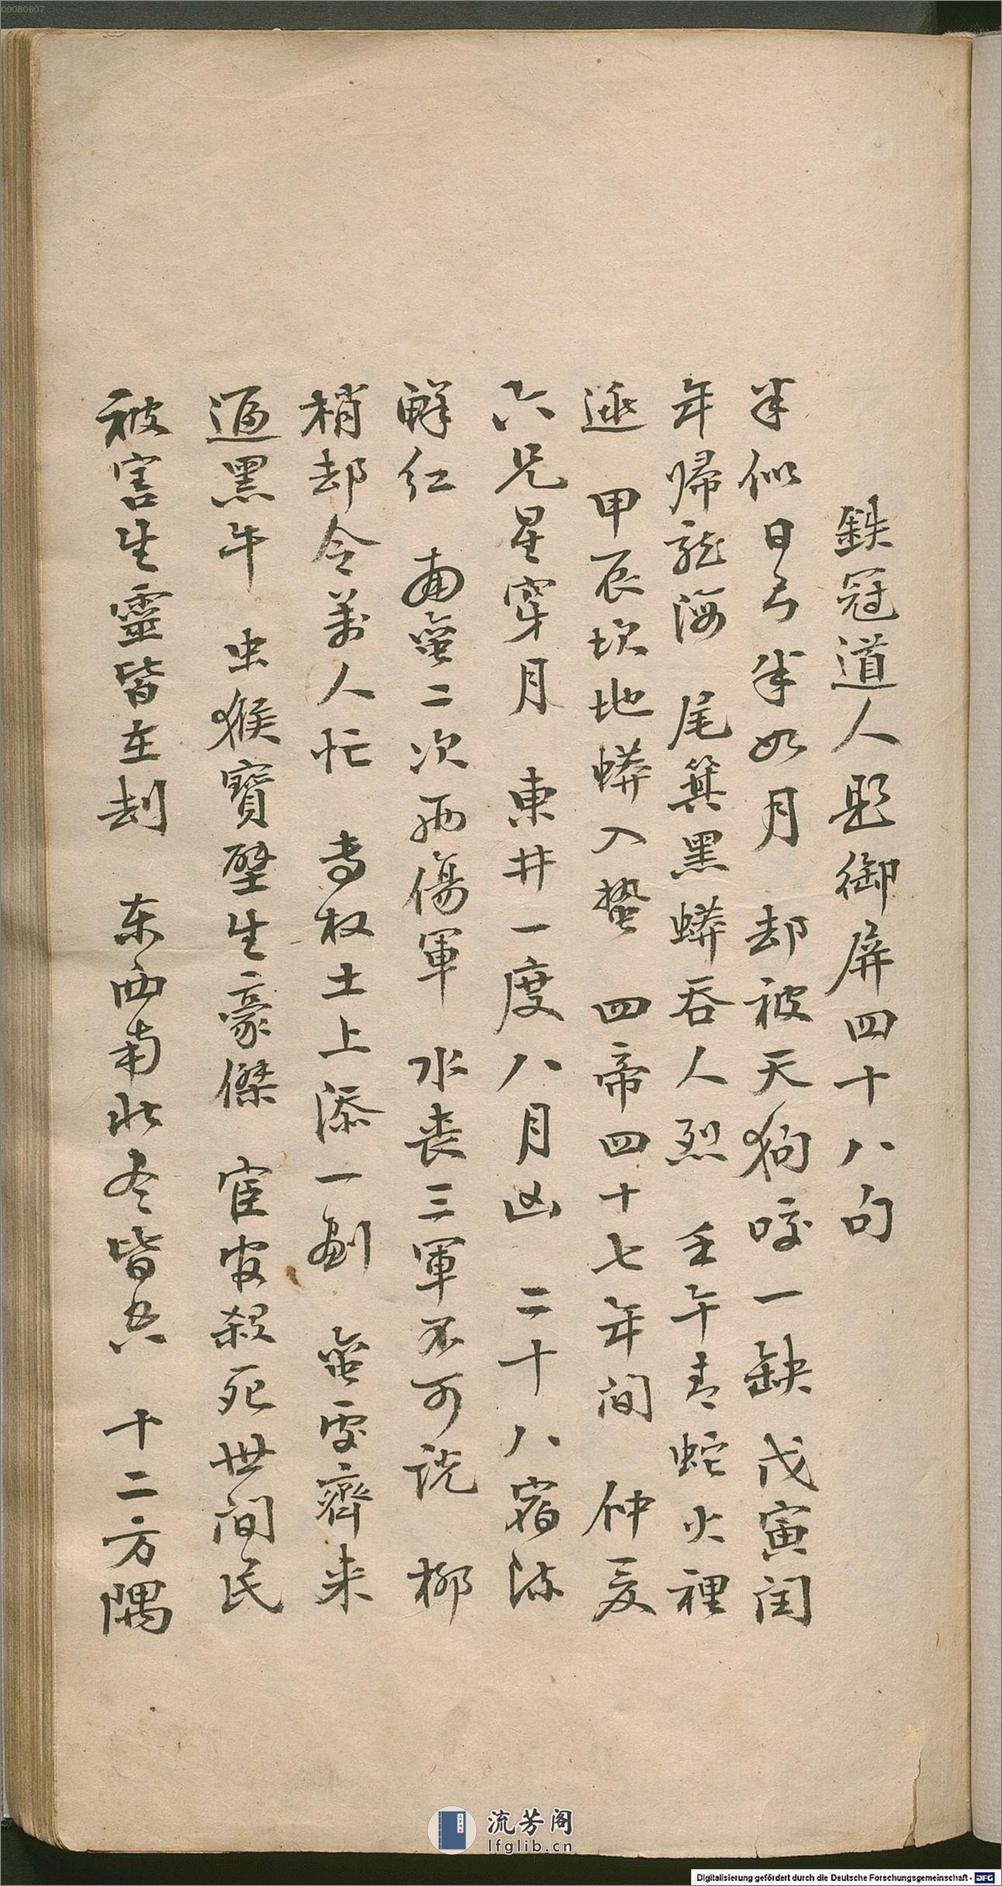 鉄冠道人題御屏四十八句
半似日兮半如月 却被天狗咬一缺 戊寅闰
年歸龍海 尾箕黑蟒吞人烈 壬午青蛇火裡
逃 甲辰坎地蟒入蟄 四帝四十七年间 仲夏
六兄星穿月 東井一度八月凶 二十八宿
鮮红 南蛮二次西傷軍 水喪三軍不可说 柳
梢却令萬人忙 专权土上添一 蛮雯齊来
逼黑牛 虫猴寶璧生豪傑 宦官殺死世间民
被害生靈皆在刦 东西南北冬皆 十二方隅
00080607
流芳阁
lfglib.cn
Digitalisierung gefördert durch die Deutsche Forschungsgemeinschaft - DFG